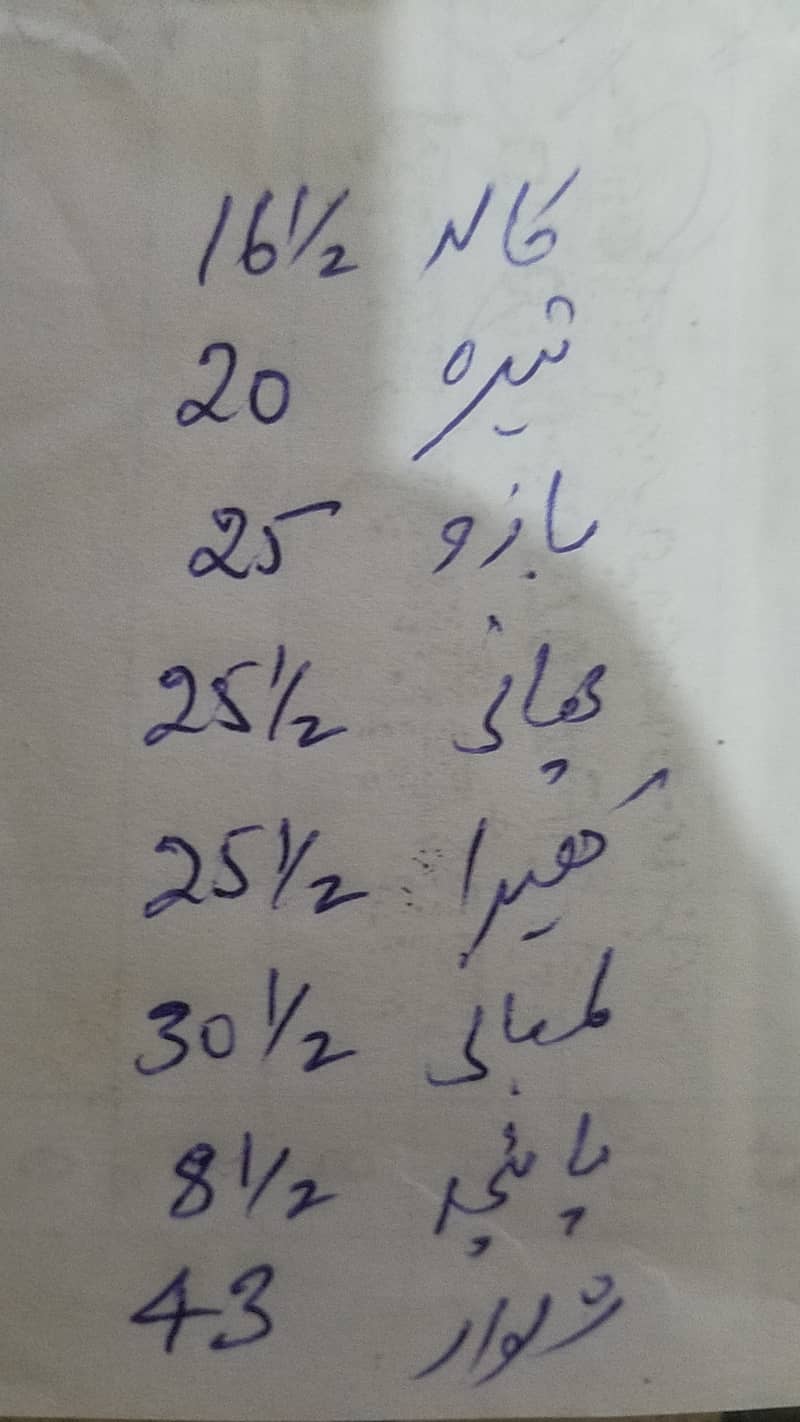 کالر 16 1/2
تیرہ 20
بازو 25
چھاتی 25 1/2
گھیرا 25 1/2
لمبائی 30 1/2
پائنچہ 8 1/2
شلوار 43